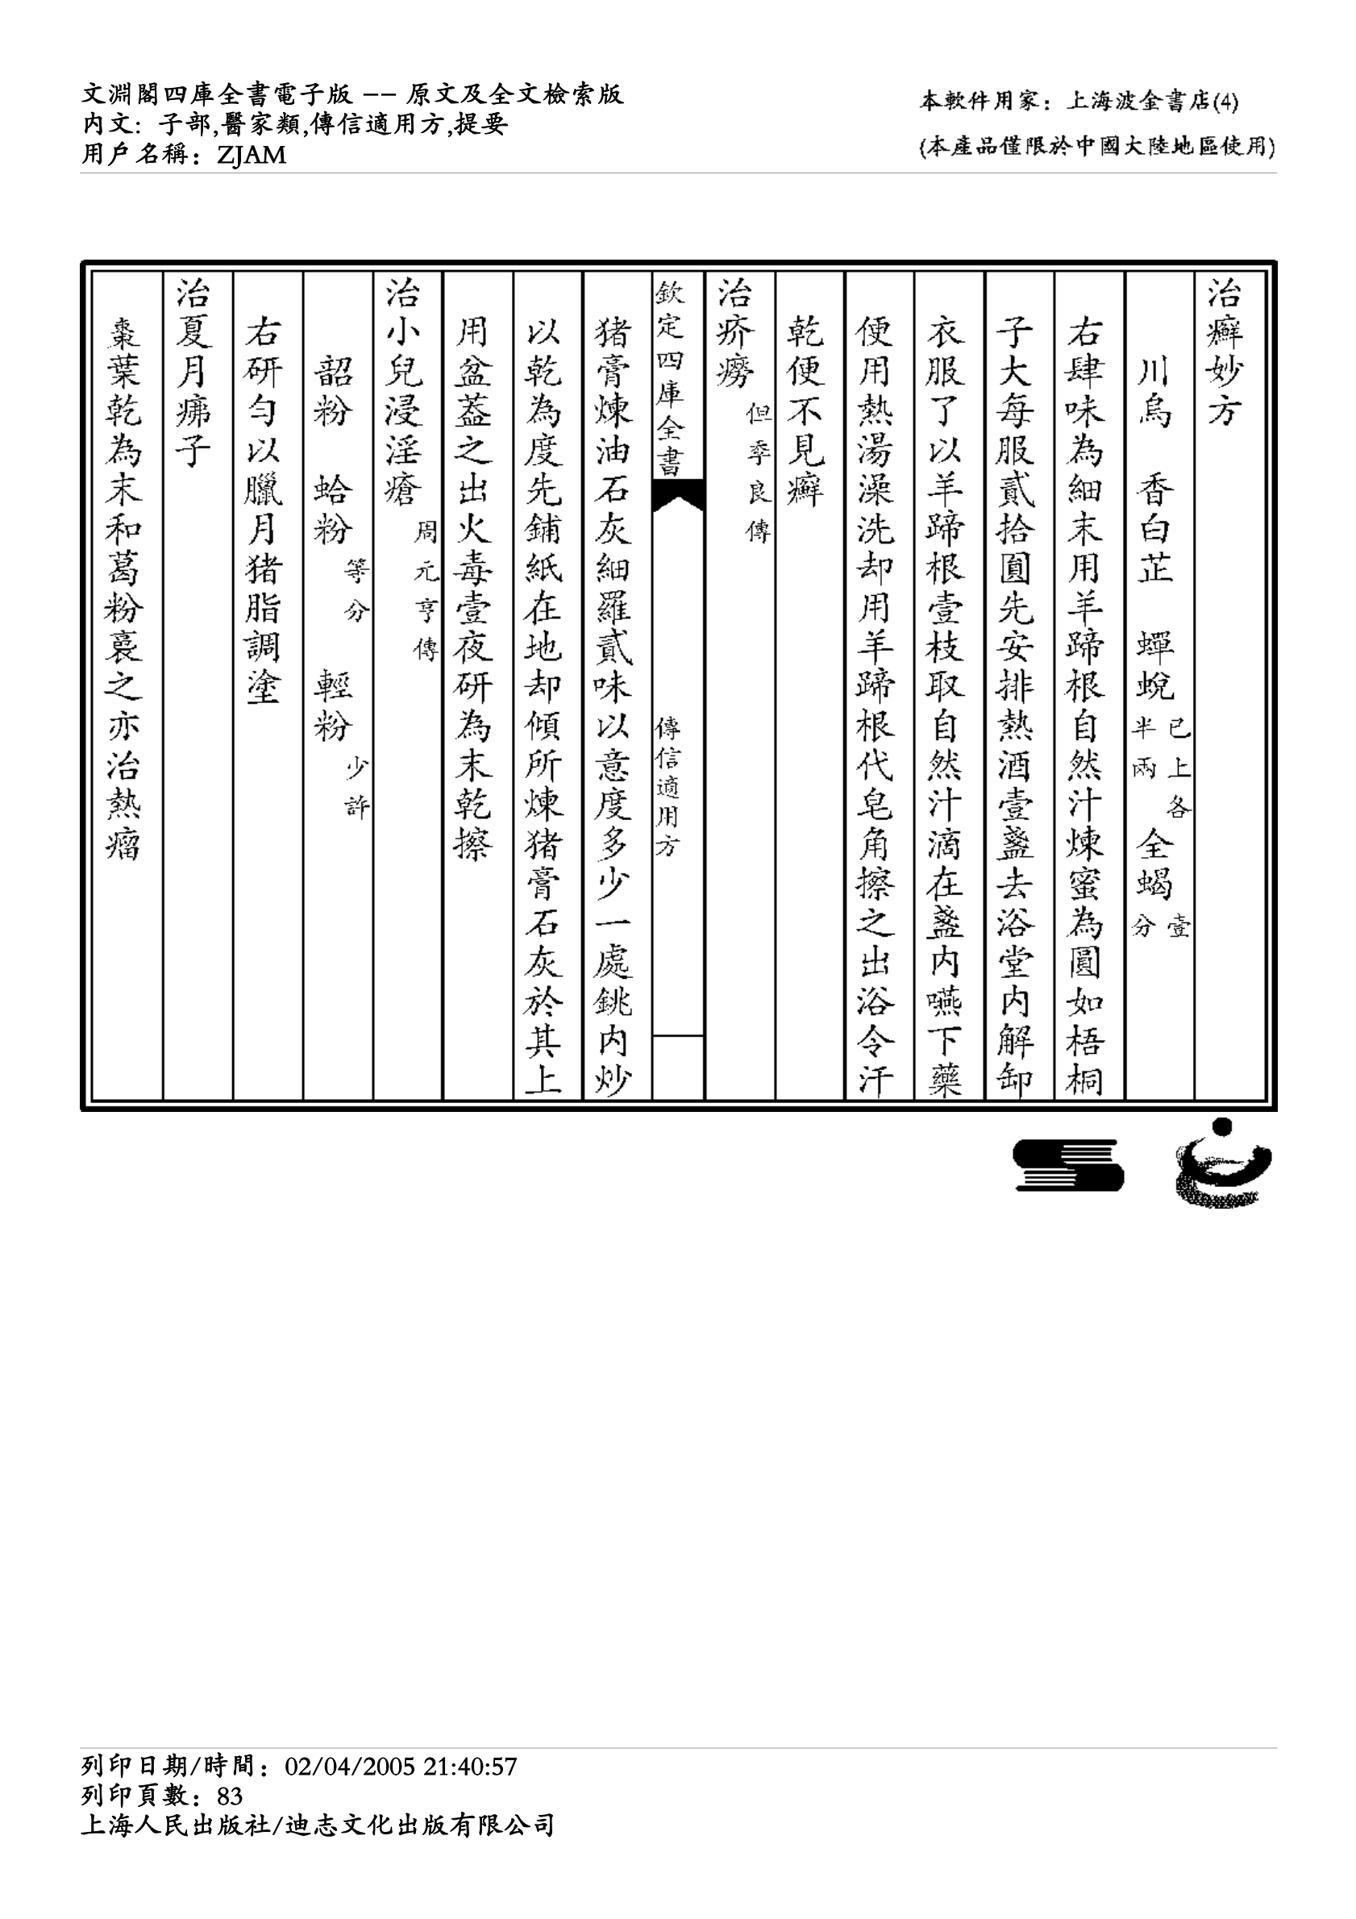 文淵閣四庫全書電子版 -- 原文及全文檢索版
内文: 子部,醫家類,傳信適用方,提要
用戶名稱: ZJAM
本軟件用家: 上海波金書店(4)
(本產品僅限於中國大陸地區使用)
治癬妙方
川烏 香白芷 蟬蛻 已上各半兩 全蝎 壹分
右肆味為細末用羊蹄根自然汁煉蜜為圓如梧桐
子大每服貳拾圓先安排熱酒壹盞去浴堂内解卸
衣服了以羊蹄根壹枝取自然汁滴在盞内嚥下藥
便用熱湯澡洗却用羊蹄根代皂角擦之出浴令汗
乾便不見癬
治疥癆 但季良傳
欽定四庫全書 傳信適用方
猪膏煉油石灰細羅貳味以意度多少一處銚内炒
以乾為度先鋪紙在地却傾所煉猪膏石灰於其上
用盆蓋之出火毒壹夜研為末乾擦
治小兒浸淫瘡 周元亨傳
韶粉 蛤粉 等分 輕粉 少許
右研勻以臘月猪脂調塗
治夏月疿子
棗葉乾為末和葛粉裛之亦治熱瘤
列印日期/時間: 02/04/2005 21:40:57
列印頁數: 83
上海人民出版社/迪志文化出版有限公司